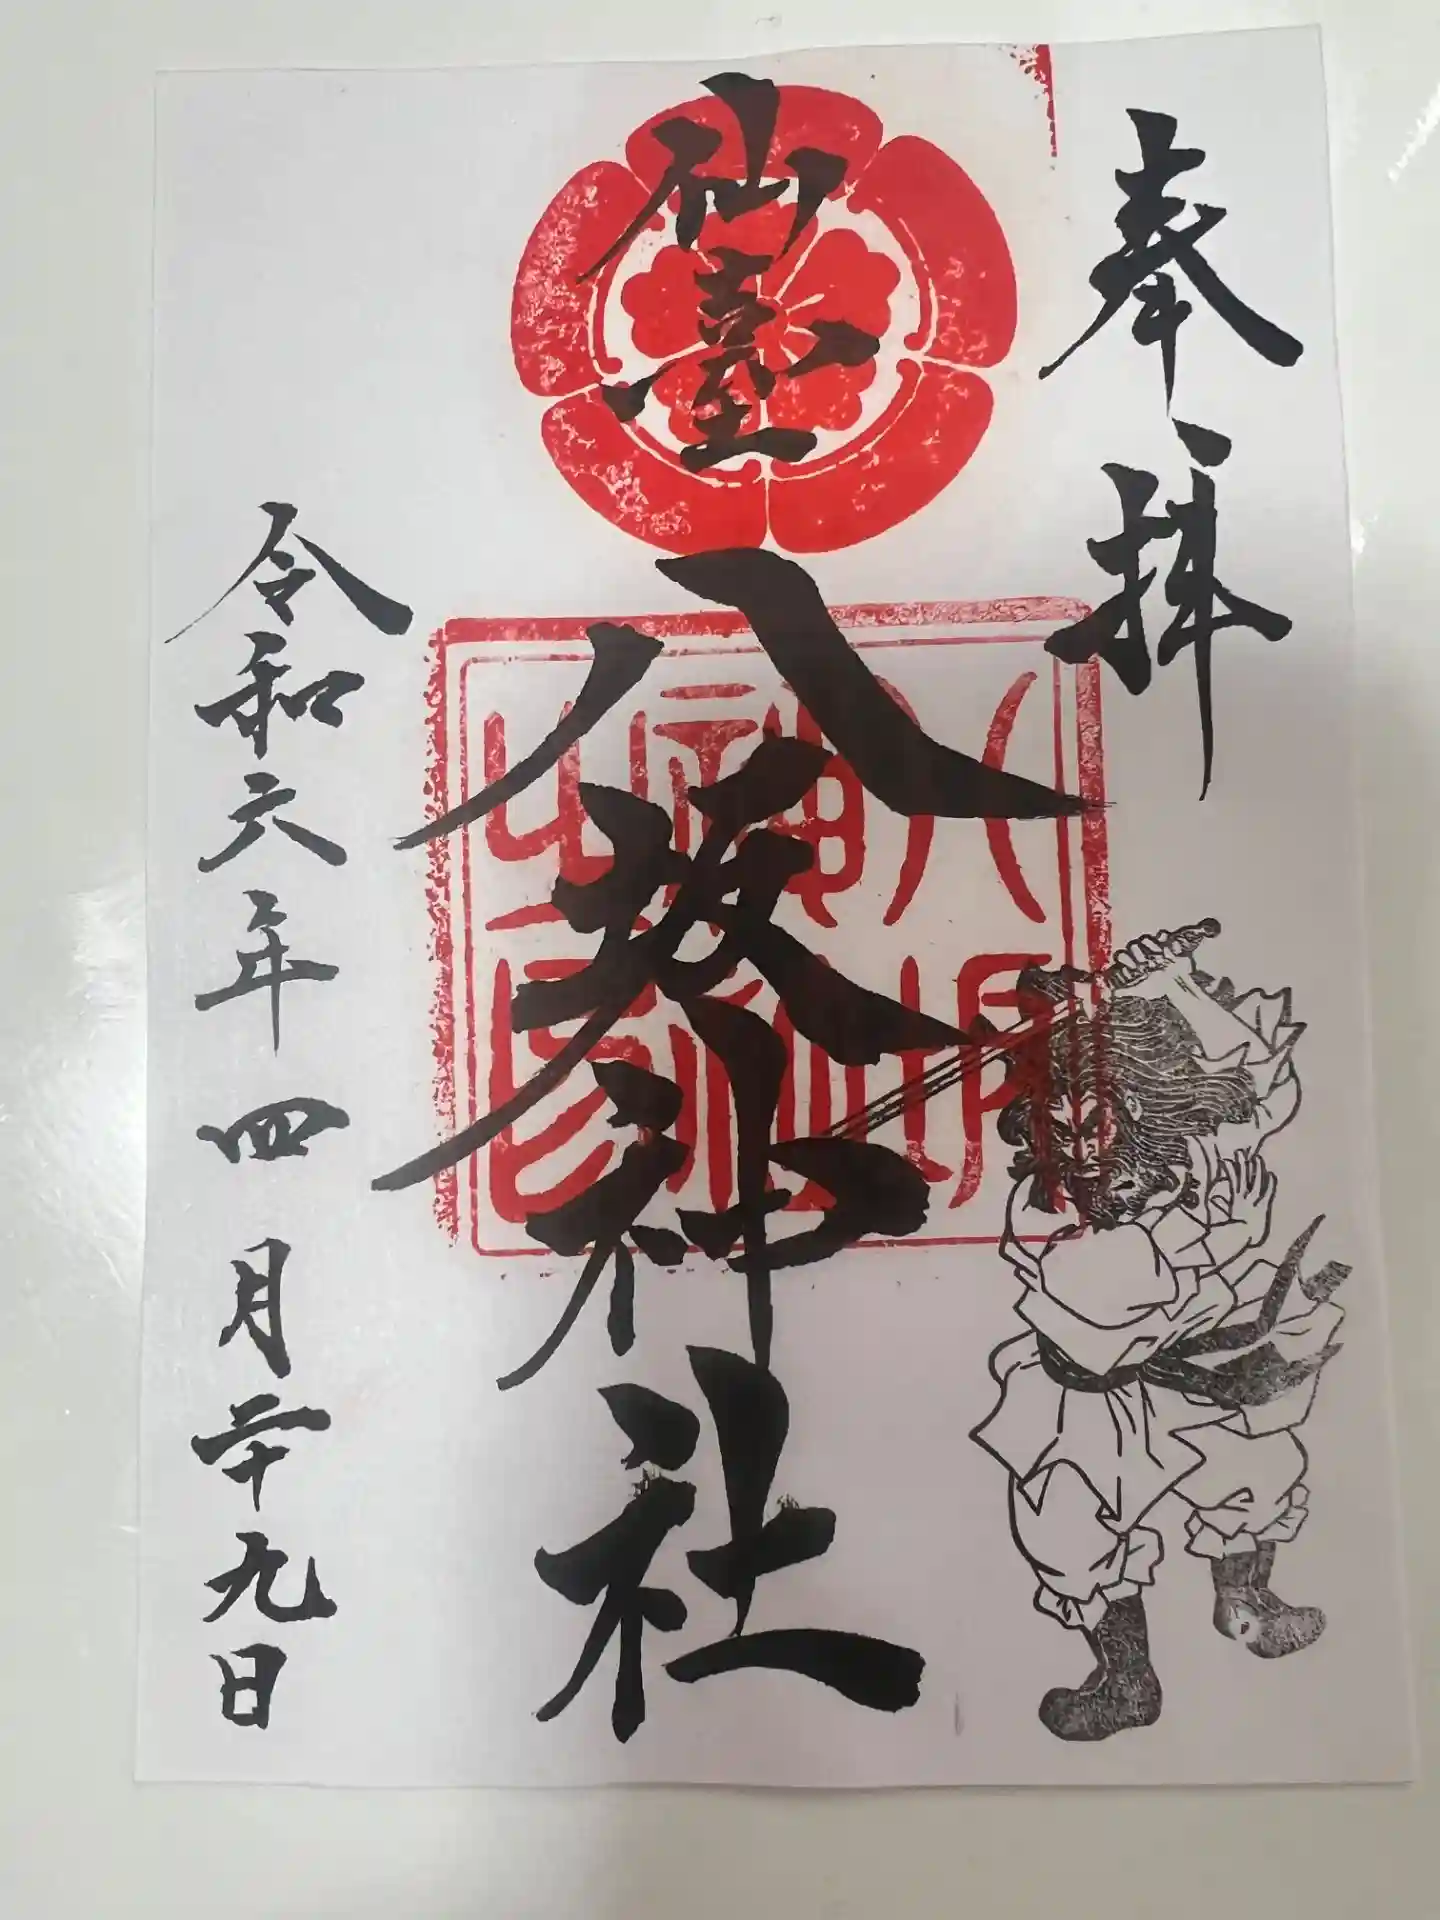 奉拝
仙臺
八坂神社
八坂神社之印
令和六年四月二十九日